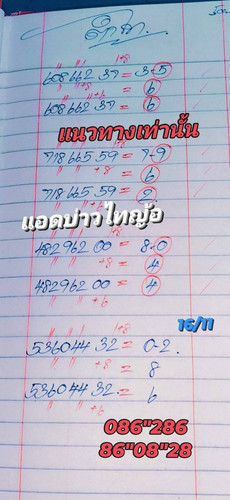 1+8
608662 37 = 3-5
+8 = 6
4+6
608662 37 = 6
แนวทางเท่านั้น
1+8
718665 59 = 7-9
+8 = 6
718665 59 = 2
แอดบ่าวไทญ้อ
1+8
482962 00 = 8-0
+8 = 4
482962 00 = 4
+6
16/11
1+8
536044 32 = 0-2.
+8 = 8
536044 32 = 6
+6
086"286
86"08"28